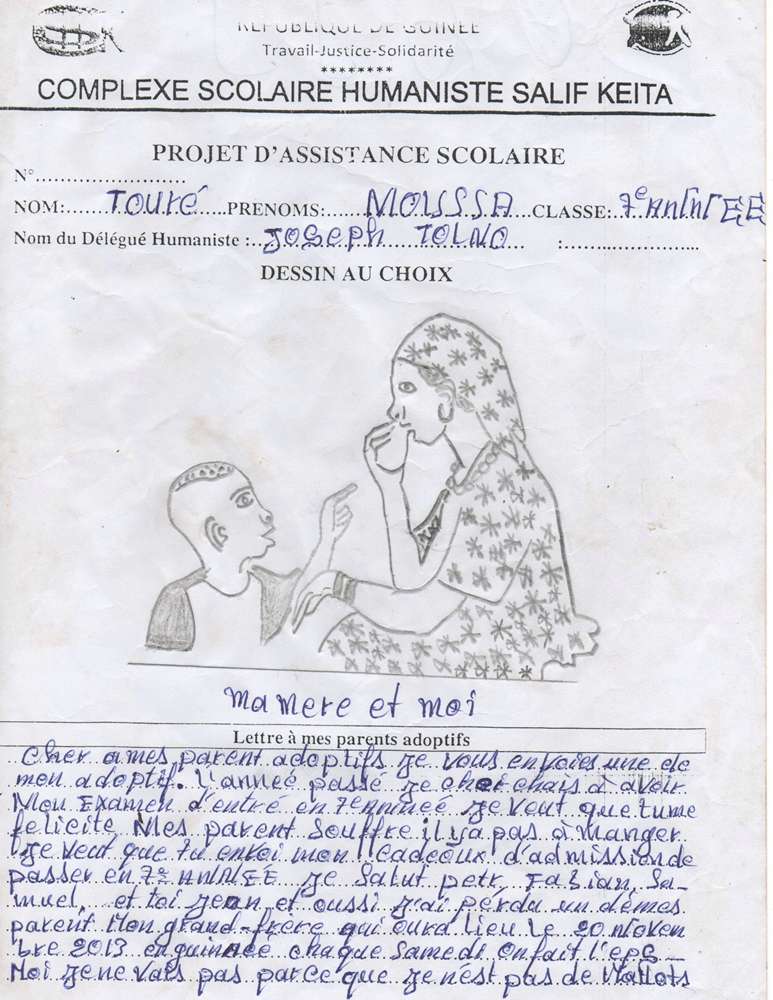 REPUBLIQUE DE GUINEE
Travail-Justice-Solidarité
********
COMPLEXE SCOLAIRE HUMANISTE SALIF KEITA
PROJET D'ASSISTANCE SCOLAIRE
N°........................
NOM:...... Touré .....PRENOMS:...... MOUSSA ...CLASSE:. 7e ANNEE
Nom du Délégué Humaniste :.. JOSEPH TOLNO :.......................
DESSIN AU CHOIX
Ma Mere et moi
Lettre à mes parents adoptifs
Cher a mes parent adoptifs je vous envoies une de
mon adoptif. L'anneé passé je cherchais à avoir
Mou Examen d'entré en 7e annneé je veut que tu me
felicite Mes parent souffre il ya pas à manger
je veut que tu envoi mon cadeaux d'admission de
passer en 7e ANNEE je salut petr, Fabian, Sa-
muel, et toi jean et aussi j'ai perdu un de mes
parent Mon grand-frère qui oura lieu le 20 noven
bre 2013 en guineé chaque samedi on fait l'eps
Moi je ne vais pas parce que je n'est pas de Mallots